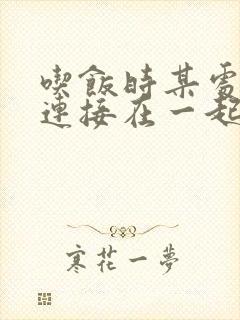 喫飯時某處
連接在一起
寒花一夢